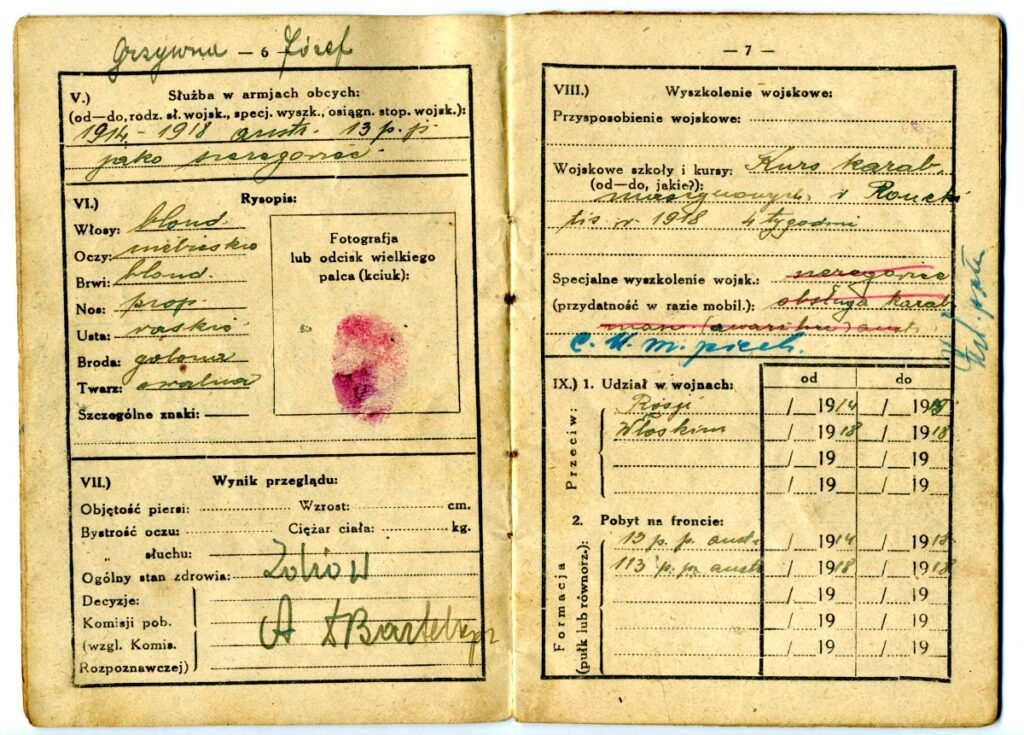 Grzywna — 6 — Józef
V.) Służba w armjach obcych:
(od—do, rodz. sł. wojsk., specj. wyszk., osiągn. stop. wojsk.):
1914 - 1918 austr. 13 p.p.
jako szeregowiec.
VI.) Rysopis:
Włosy: blond
Oczy: niebieskie
Brwi: blond.
Nos: prop.
Usta: wąskie
Broda: golona
Twarz: owalna
Szczególne znaki:
Fotografja
lub odcisk wielkiego
palca (kciuk):
VII.) Wynik przeglądu:
Objętość piersi: Wzrost: cm.
Bystrość oczu: Ciężar ciała: kg.
słuchu:
Ogólny stan zdrowia: Zdrów
Decyzje:
Komisji pob.
(wzgl. Komis.
Rozpoznawczej)
A
— 7 —
VIII.) Wyszkolenie wojskowe:
Przysposobienie wojskowe:
Wojskowe szkoły i kursy: Kurs karab.
(od—do, jakie?): maszynowych w
w 1918 4 tygodni
Specjalne wyszkolenie wojsk.: szeregowiec
(przydatność w razie mobil.): obsługa karab
masz
C. K. M. piech.
IX.) 1. Udział w wojnach: od do
Przeciw:
Rosji /__19 14 /__19 18
Włoskim /__19 18 /__19 18
/__19 /__19
/__19 /__19
2. Pobyt na froncie:
Formacja
(pułk lub równorz.):
13 p. p. austr. /__19 14 /__19 18
113 p. p. austr /__19 18 /__19 18
/__19 /__19
/__19 /__19
/__19 /__19